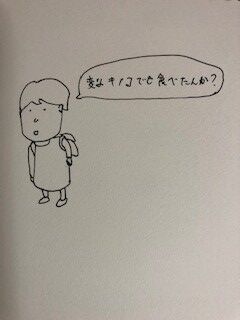 変なキノコでも食べたんか?